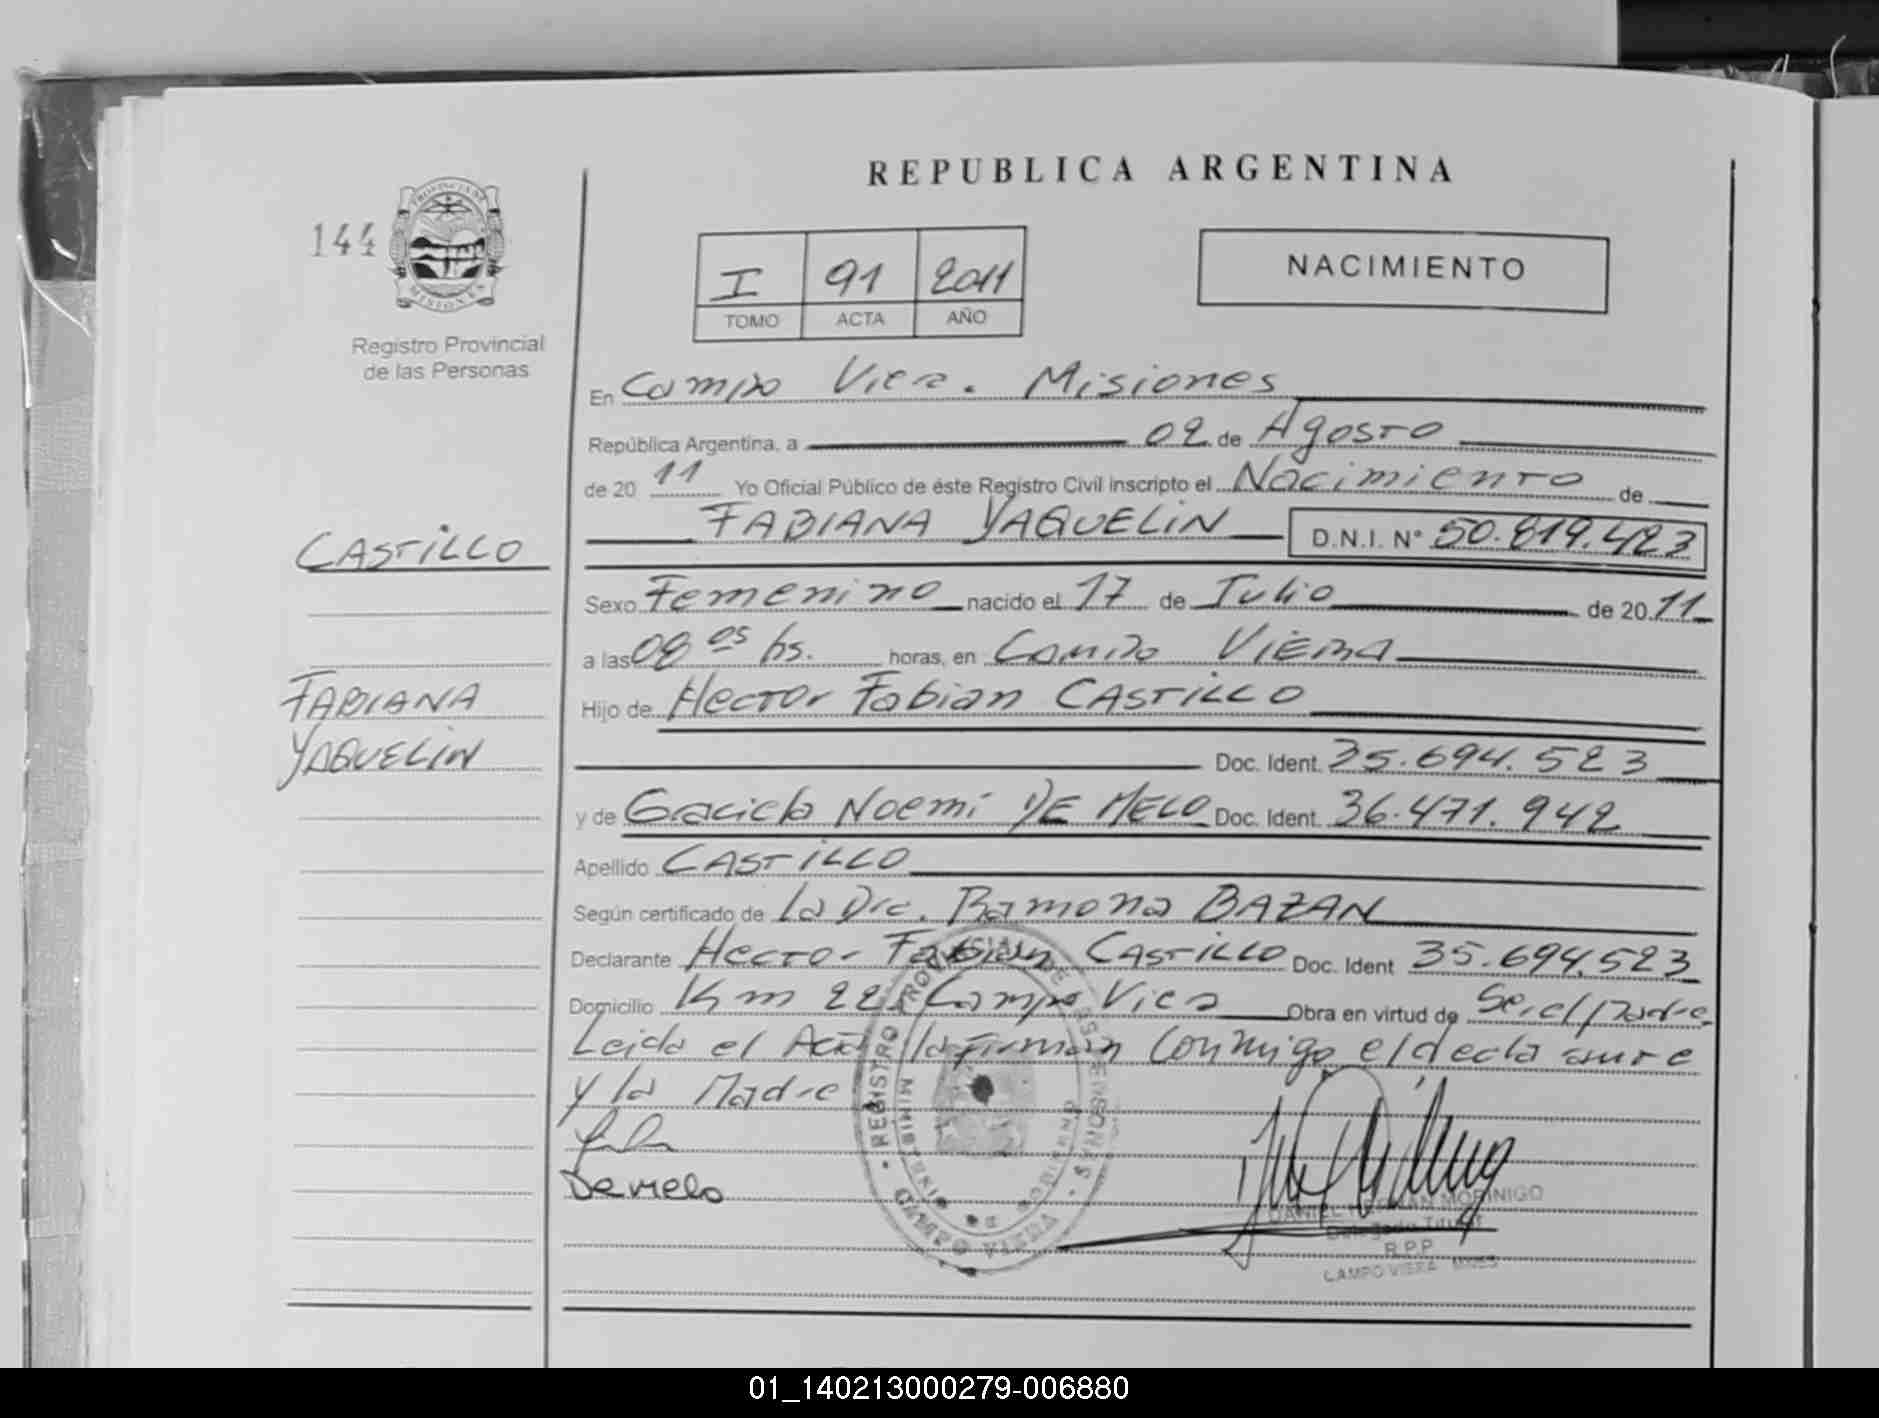 REPUBLICA ARGENTINA
144
PROVINCIA DE MISIONES
Registro Provincial
de las Personas
I 91 2011
TOMO ACTA AÑO
NACIMIENTO
En Campo Viera. Misiones
República Argentina, a 02 de Agosto
de 20 11 Yo Oficial Público de éste Registro Civil inscripto el Nacimiento de
FABIANA YAQUELIN D.N.I. N° 50.819.423
CASTILLO
Sexo Femenino nacido el 17 de Julio de 20 11
a las 08 05 hs. horas, en Campo VIERA
FABIANA
YAQUELIN
Hijo de Hector Fabian CASTILLO
Doc. Ident. 35.694.523
y de Graciela Noemi DE MELO Doc. Ident. 36.471.942
Apellido CASTILLO
Según certificado de la Dra. Ramona BAZAN
Declarante Hector Fabian CASTILLO Doc. Ident 35.694.523
Domicilio Km 22 Campo Viera Obra en virtud de Ser el padre
Leida el Acta la firman Conmigo el declarante
y la Madre
De melo
REGISTRO PROVINCIAL DE LAS PERSONAS
CAMPO VIERA
DANIEL HERNAN MORINIGO
Delegado Titular
R.P.P.
CAMPO VIERA MNES
01_140213000279-006880